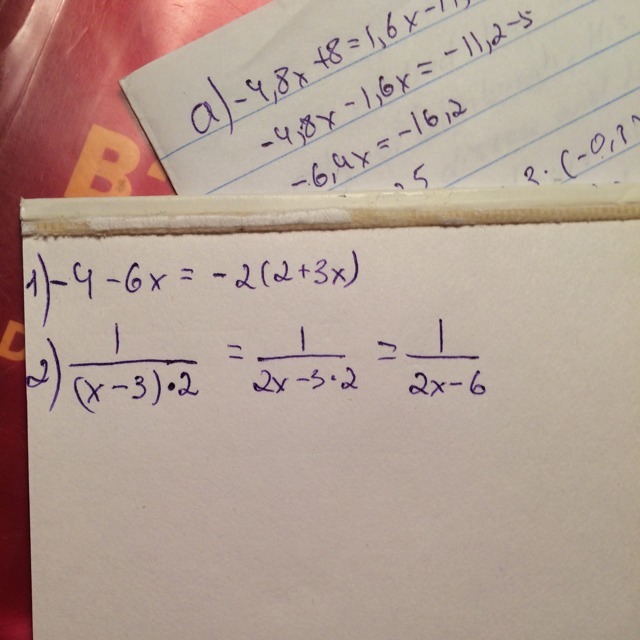 а) -4,8x+8=1,6x-11,
-4,8x-1,6x=-11,2-5
-6,4x=-16,2
1) -4-6x = -2(2+3x)
2) 1/((x-3)·2) = 1/(2x-3·2) = 1/(2x-6)